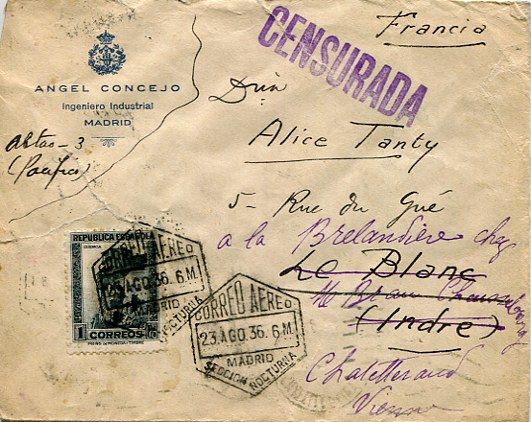 Francia
CENSURADA
ANGEL CONCEJO
Ingeniero Industrial
MADRID
(Pacífico)
Alice Tanty
5 - Rue du Gué
a la Brelandière chez
Le Blanc
(Indre)
Chatellerault
Vienne
REPUBLICA ESPAÑOLA
CUENCA
1 CORREOS
CORREO AEREO
23 AGO 36. 6 M
MADRID
NOCTURNA
CORREO AEREO
23 AGO 36. 6 M
MADRID
SECCION NOCTURNA